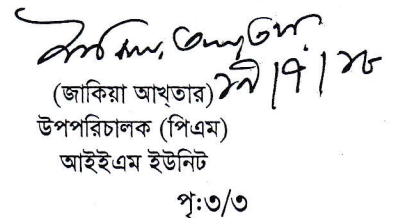 (জাকিয়া আখ্তার)
উপপরিচালক (পিএম)
আইইএম ইউনিট
পৃ:৩/৩